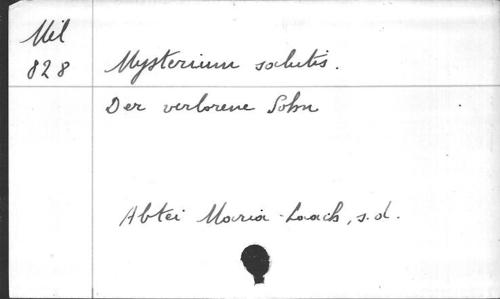 Mil
828
Mysterium salutis.
Der verlorene Sohn
Abtei Maria-Laach, s.d.